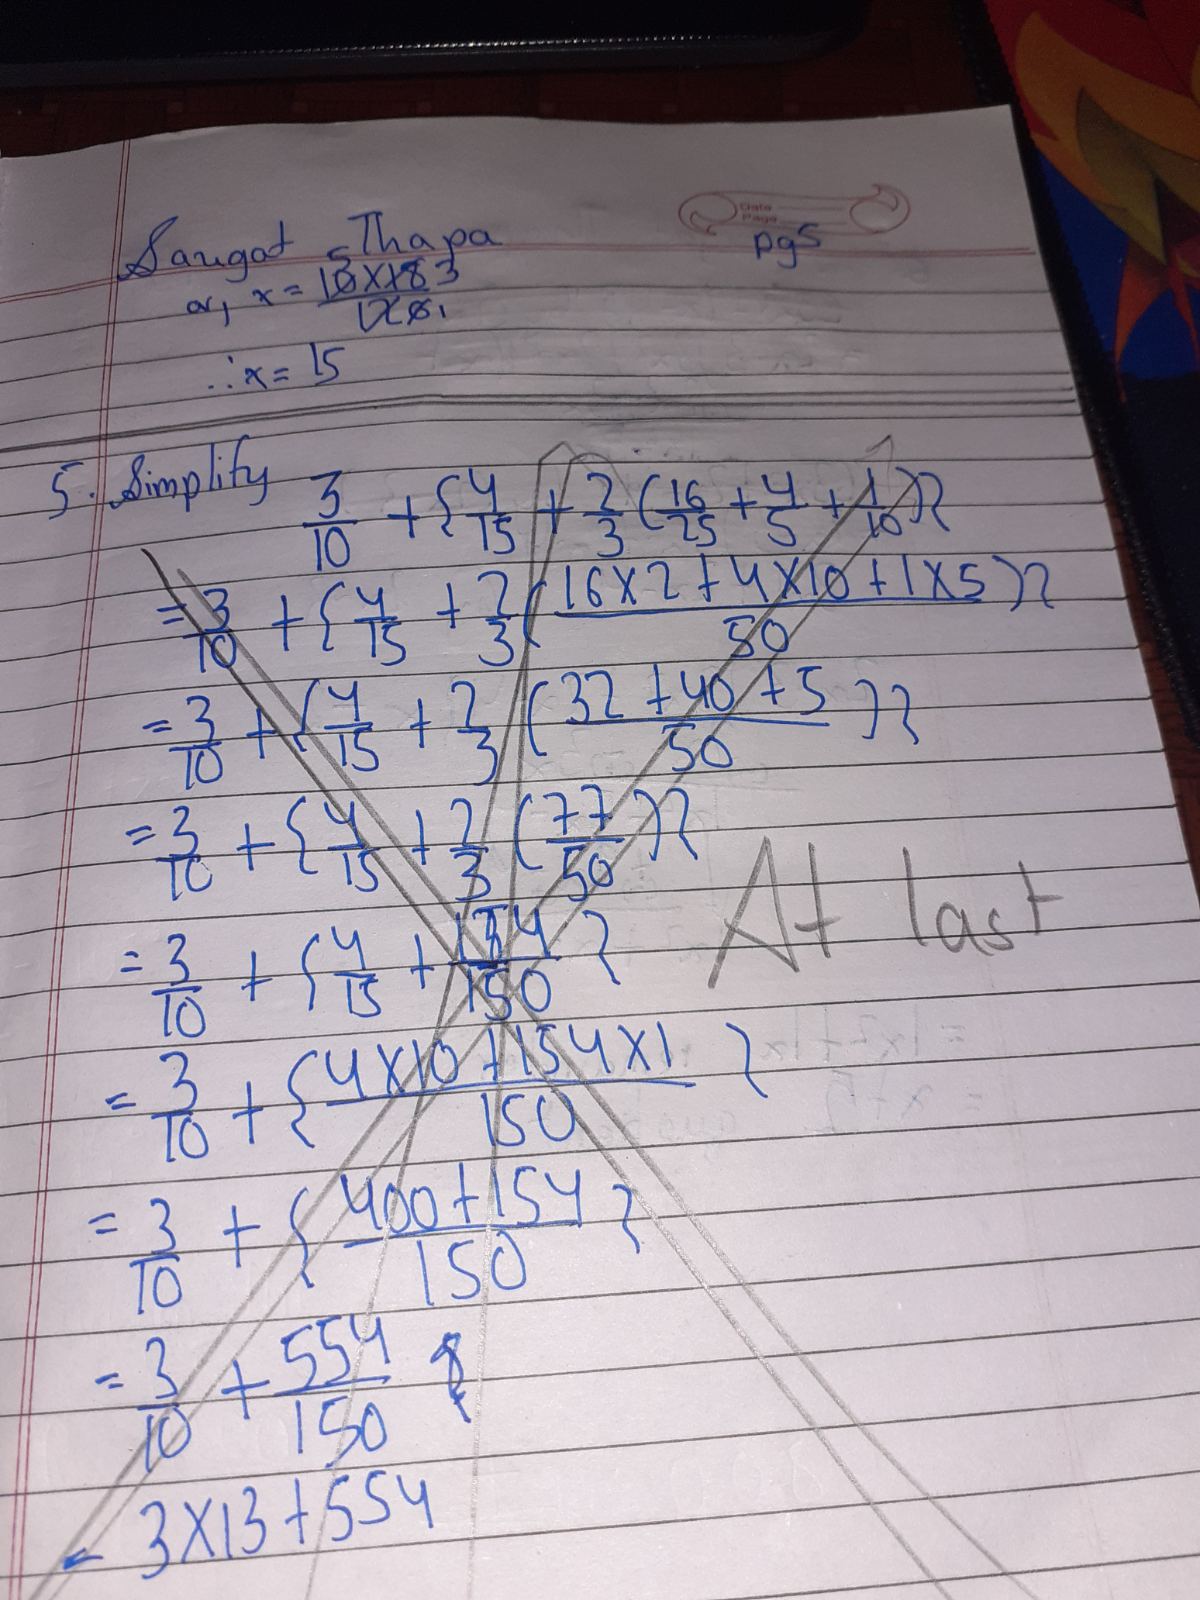 Saugat Thapa
Date
Page
pg5
or, x = 10×18 3 5 / 12 6 1
∴ x = 15
5. Simplify 3/10 + {4/15 + 2/3 (16/25 + 4/5 + 1/10)}
= 3/10 + {4/15 + 2/3 (16×2+4×10+1×5 / 50)}
= 3/10 + {4/15 + 2/3 (32+40+5 / 50)}
= 3/10 + {4/15 + 2/3 (77/50)}
At last
= 3/10 + {4/15 + 154/150}
= 3/10 + {4×10+154×1 / 150}
= 3/10 + {400+154 / 150}
= 3/10 + 554/150
= 3×13+554